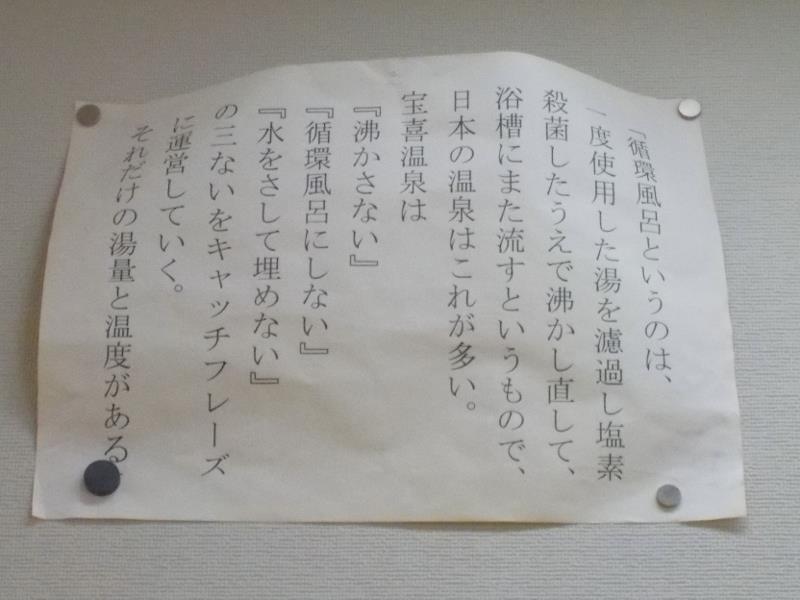 「循環風呂というのは、
一度使用した湯を濾過し塩素
殺菌したうえで沸かし直して、
浴槽にまた流すというもので、
日本の温泉はこれが多い。
宝喜温泉は
『沸かさない』
『循環風呂にしない』
『水をさして埋めない』
の三ないをキャッチフレーズ
に運営していく。
それだけの湯量と温度がある